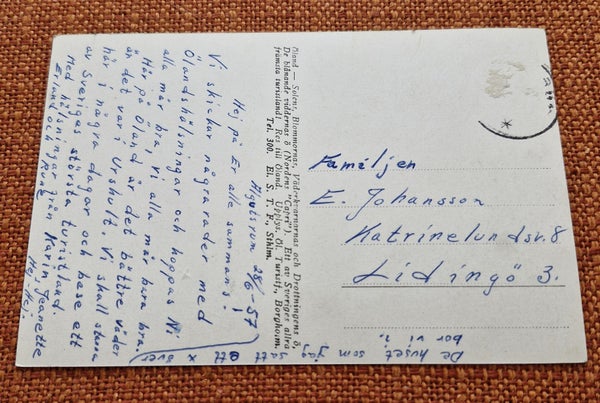 Algutsrum 28/6-57
Hej på Er alla sammans!
Vi skickar några rader med
Ölandshälsningar och hoppas Ni
alla mår bra, vi alla mår bara bra.
Här på Öland är det bättre väder
än det var i Urshult. Vi skall stanna
här i några dagar och bese ett
av Sveriges största turistland.
Med hälsningar från Karin, Jeanette
Erland och Arne
Hej, Hej.
Öland — Solens, Blommornas, Väderkvarnornas och Drottningens ö,
De blånande viddernas ö (Nordens "Capri"). Ett av Sveriges allra
främsta turistland! Res till Öland. Upplys. Öl. Turistf., Borgholm.
Tel. 300. El. S. T. F., Sthlm.
Familjen
E. Johansson
Katrinelundsv. 8
Lidingö 3.
De huset som jag satt ett x över
bor vi i.